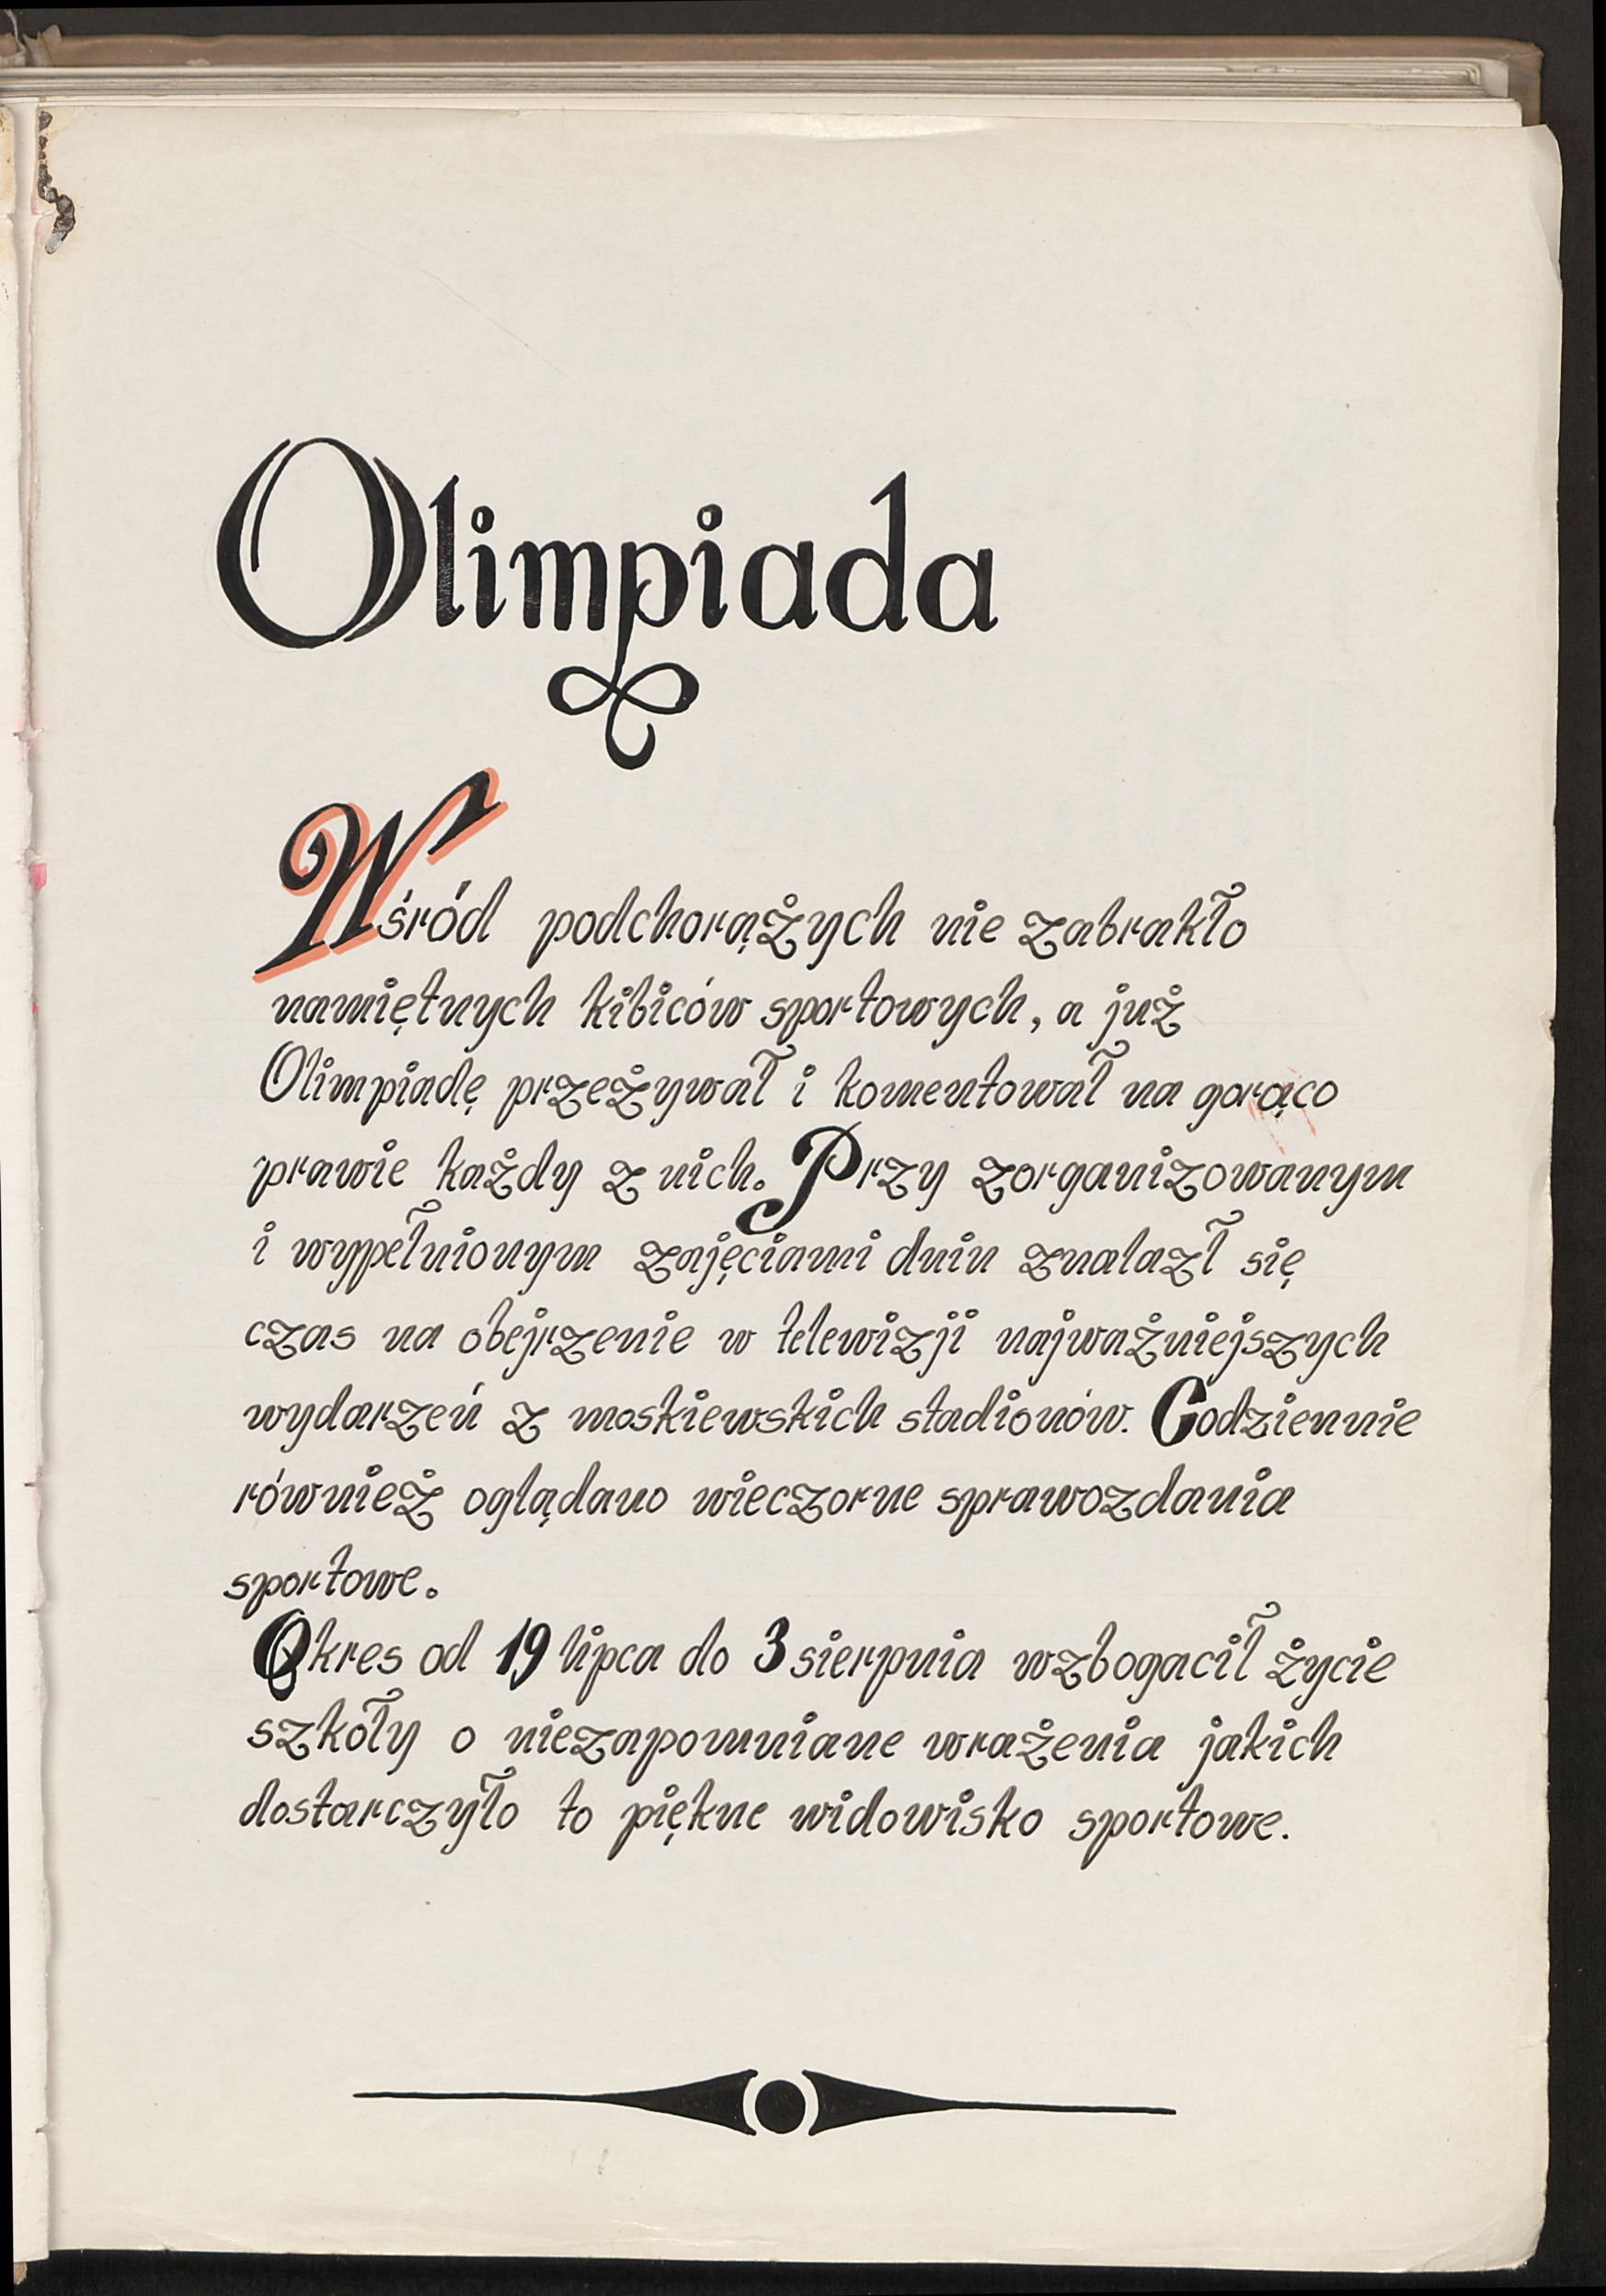 Olimpiada
Wśród podchorążych nie zabrakło
namiętnych kibiców sportowych, a już
Olimpiadę przeżywał i komentował na gorąco
prawie każdy z nich. Przy zorganizowanym
i wypełnionym zajęciami dniu znalazł się
czas na obejrzenie w telewizji najważniejszych
wydarzeń z moskiewskich stadionów. Codziennie
również oglądano wieczorne sprawozdania
sportowe.
Okres od 19 lipca do 3 sierpnia wzbogacił życie
szkoły o niezapomniane wrażenia jakich
dostarczyło to piękne widowisko sportowe.